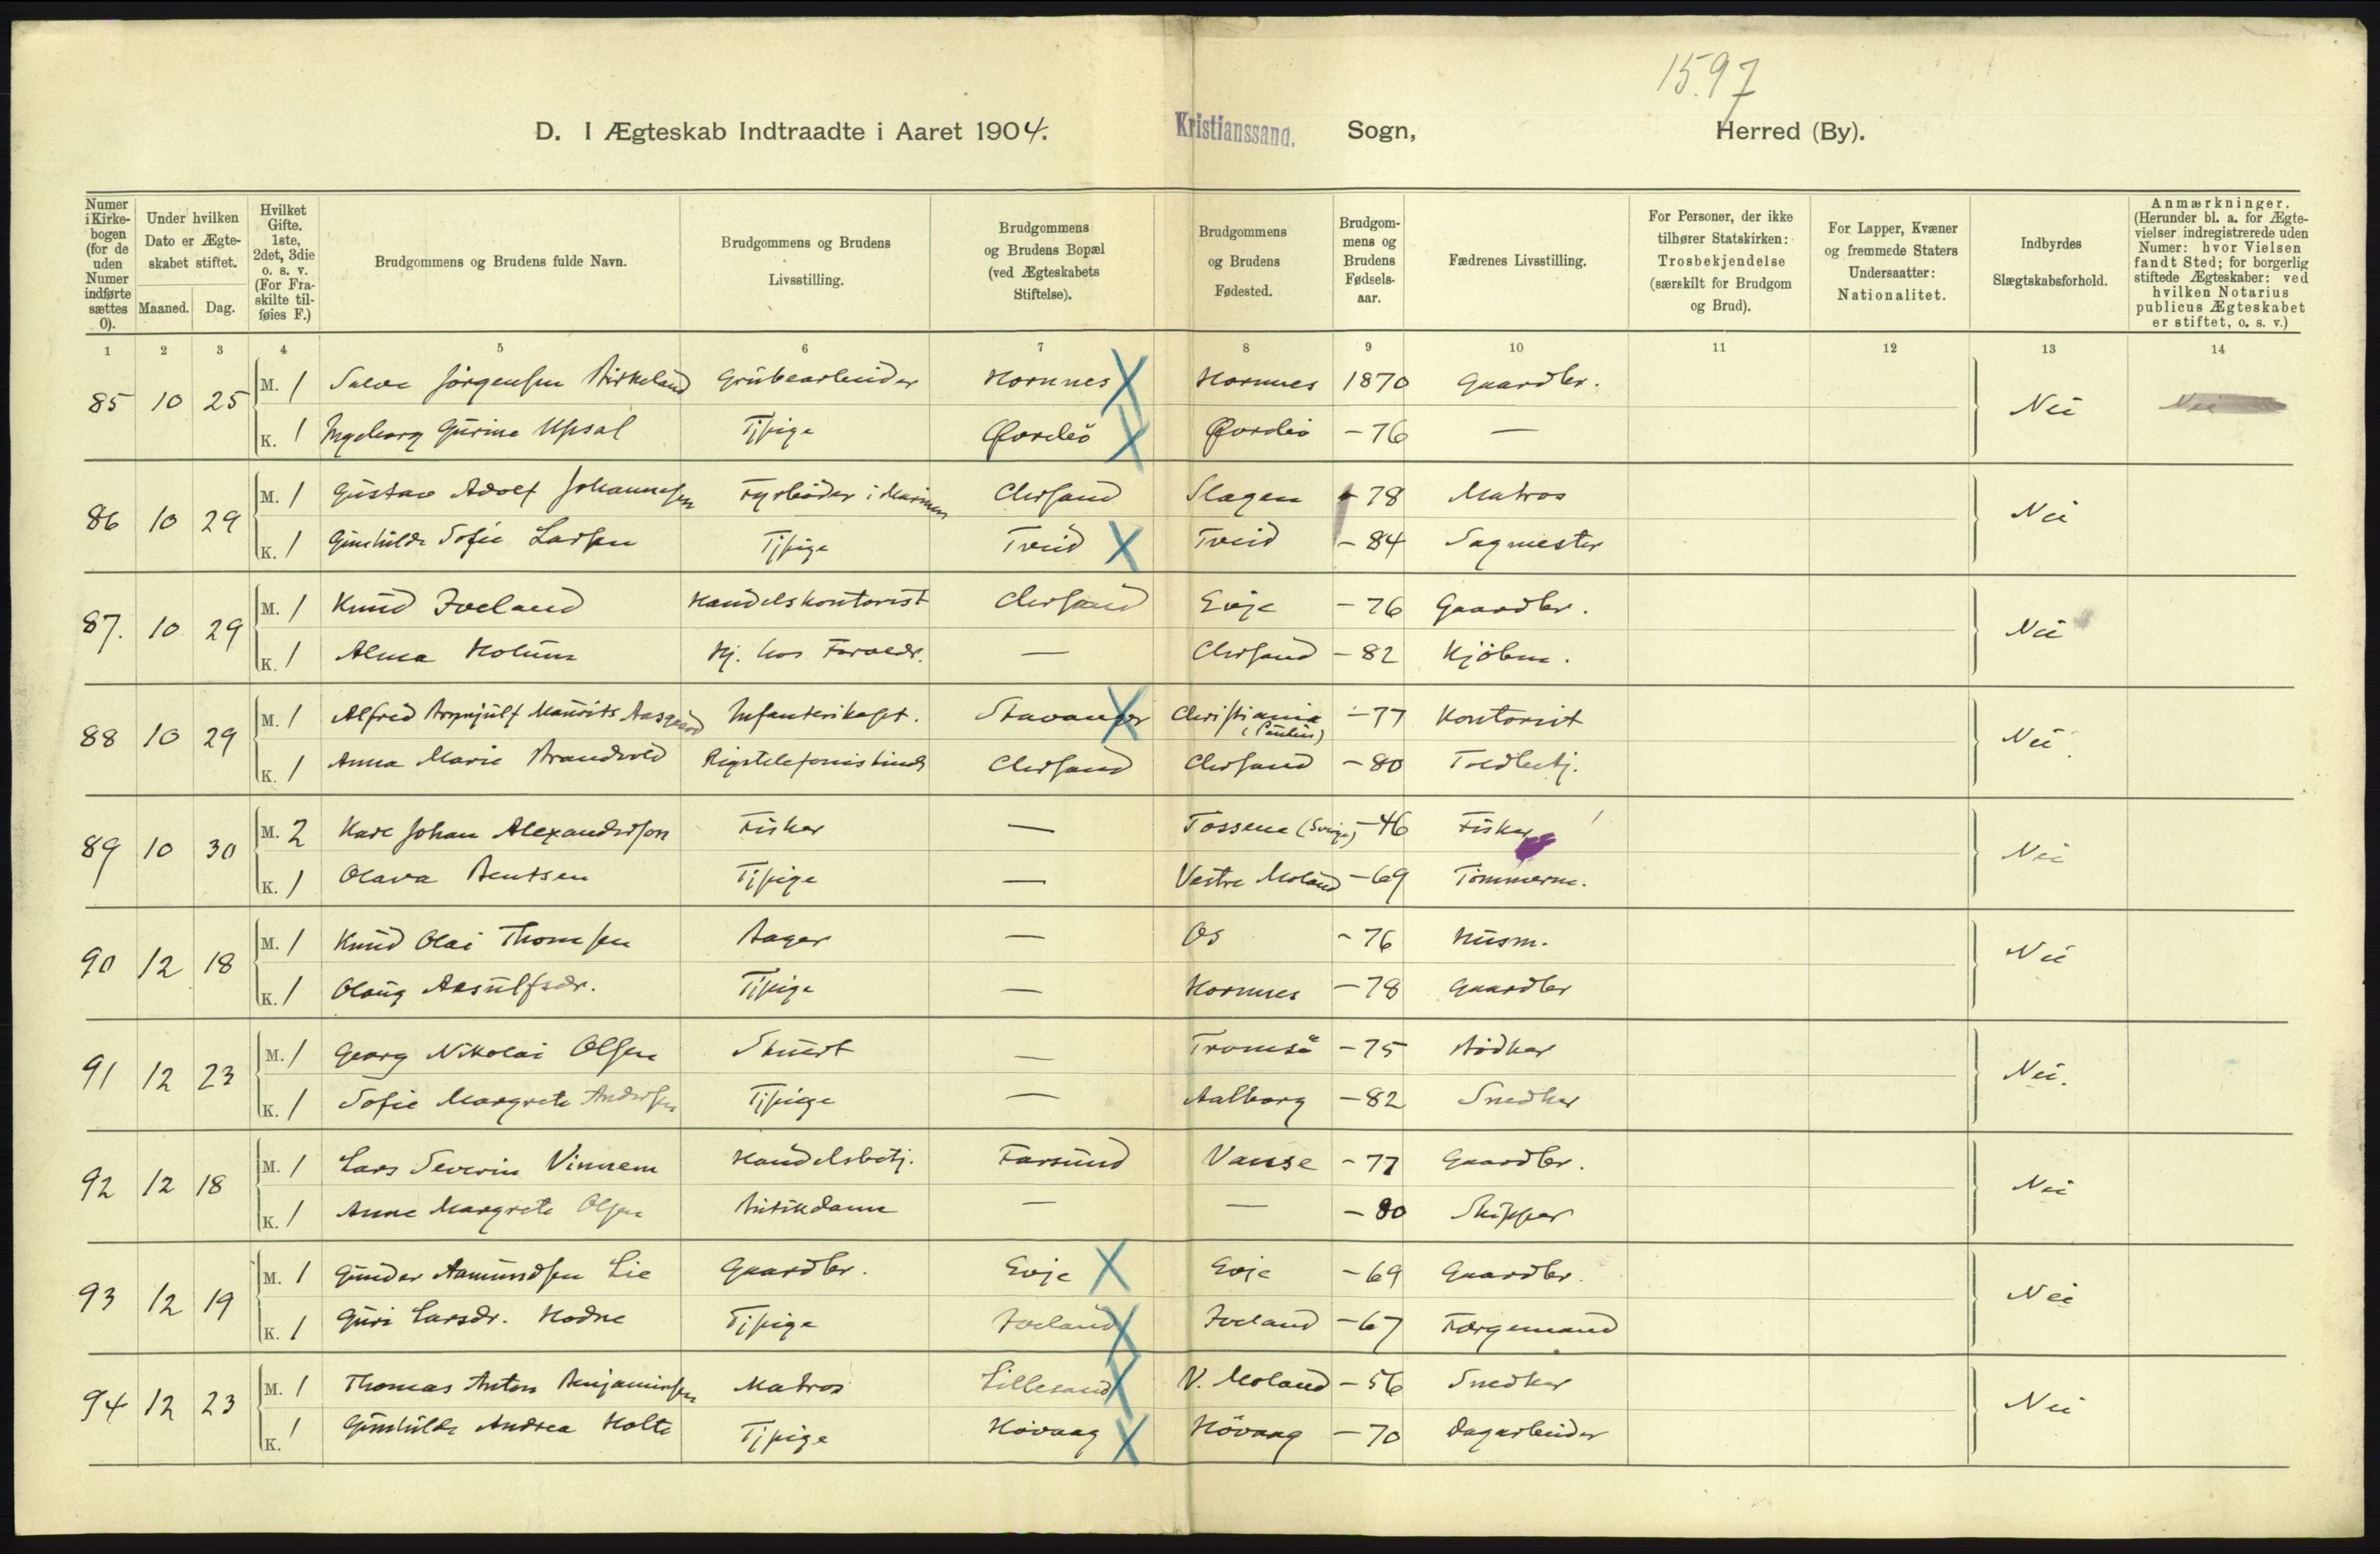 1597
D. I Ægteskab Indtraadte i Aaret 1904. Kristianssand. Sogn, Herred (By).
Numer i Kirke-bogen (for de uden Numer indførte sættes 0). Under hvilken Dato er Ægte-skabet stiftet. Maaned. Dag. Hvilket Gifte. 1ste, 2det, 3die o. s. v. (For Fra-skilte til-føies F.) Brudgommens og Brudens fulde Navn. Brudgommens og Brudens Livsstilling. Brudgommens og Brudens Bopæl (ved Ægteskabets Stiftelse). Brudgommens og Brudens Fødested. Brudgom-mens og Brudens Fødsels-aar. Fædrenes Livsstilling. For Personer, der ikke tilhører Statskirken: Trosbekjendelse (særskilt for Brudgom og Brud). For Lapper, Kvæner og fremmede Staters Undersaatter: Nationalitet. Indbyrdes Slægtskabsforhold. Anmærkninger. (Herunder bl. a. for Ægte-vielser indregistrerede uden Numer: hvor Vielsen fandt Sted; for borgerlig stiftede Ægteskaber: ved hvilken Notarius publicus Ægteskabet er stiftet, o. s. v.)
1 2 3 4 5 6 7 8 9 10 11 12 13 14
85 10 25 M. 1 Salve Jørgensen Birkeland Grubearbeider Hornnes Hornnes 1870 Gaardbr. Nei Nei
K. 1 Ingeborg Gurine Upsal Tjpige Øvrebö Øvrebö - 76 —
86 10 29 M. 1 Gustav Adolf Johannesen Fyrböder i Marinen Chrsand Slagen - 78 Matros Nei
K. 1 Gunhilde Sofie Larsen Tjpige Tveid Tveid - 84 Sagmester
87. 10 29 M. 1 Knud Iveland Handelskontorist Chrsand Evje - 76 Gaardbr. Nei
K. 1 Alma Holum Hj. hos Foraeldr. — Chrsand - 82 Kjöbm.
88 10 29 M. 1 Alfred Arnjulf Maurits Aasgaard Infanterikapt. Stavanger Christiania (Paulus) - 77 Kontorist Nei.
K. 1 Anna Marie Strandvold Rigstelefonistinde Chrsand Chrsand - 80 Toldbetj.
89 10 30 M. 2 Karl Johan Alexandersson Fisker — Tossene (Sverige) - 46 Fisker Nei
K. 1 Olava Bentsen Tjpige — Vestre Moland - 69 Tömmerm.
90 12 18 M. 1 Knud Olai Thomsen Bager — Os - 76 Husm. Nei
K. 1 Olaug Aasulfsdr. Tjpige — Hornnes - 78 Gaardbr
91 12 23 M. 1 Georg Nikolai Olsen Stuert — Tromsö - 75 Bödker Nei.
K. 1 Sofie Margrete Andersen Tjpige — Aalborg - 82 Snedker
92 12 18 M. 1 Lars Severin Vinnem Handelsbetj. Farsund Vanse - 77 Gaardbr. Nei
K. 1 Anne Margrete Olsen Butikdame — — - 80 Skipper
93 12 19 M. 1 Gunder Aamundsen Lie Gaardbr. Evje Evje - 69 Gaardbr. Nei
K. 1 Guri Larsdr. Hodne Tjpige Iveland Iveland - 67 Færgemand
94 12 23 M. 1 Thomas Anton Benjaminsen Matros Lillesand V. Moland - 56 Snedker Nei
K. 1 Gunhilde Andrea Holte Tjpige Hövaag Hövaag - 70 Dagarbeider